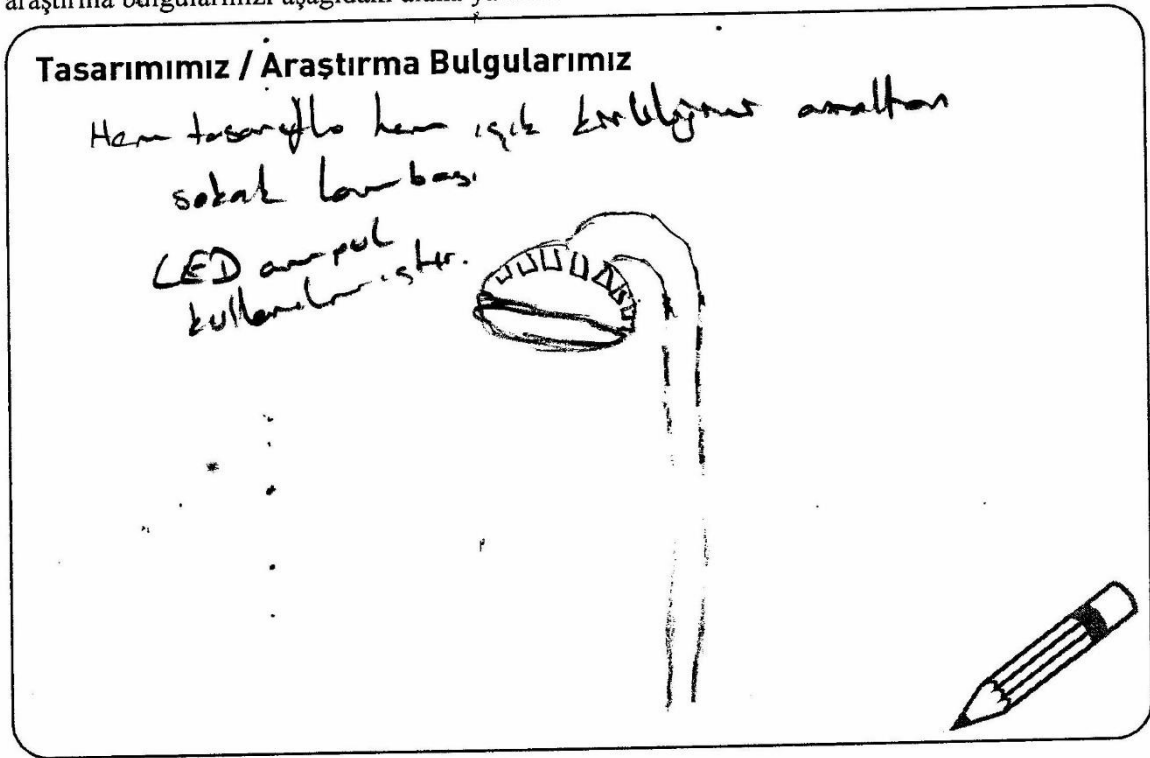 araştırma bulgularınızı aşağıdaki alana
Tasarımımız / Araştırma Bulgularımız
Hem tasarruflu hem ışık kirliliğini azaltan
sokak lambası.
LED ampul
kullanılmıştır.